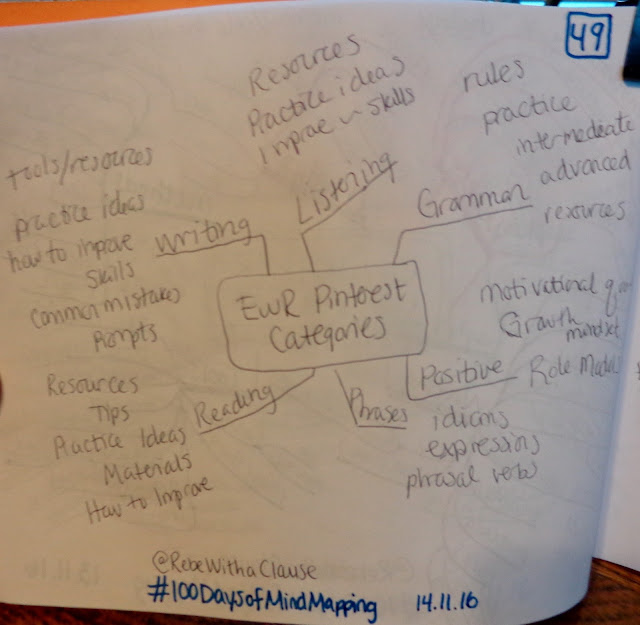 49
Resources
Practice ideas
Improve skills
Listening
rules
practice
intermediate
advanced
resources
Grammar
tools/resources
practice ideas
how to improve
skills
Common mistakes
Prompts
Writing
EwR Pinterest
Categories
motivational
Growth
mindset
Role Models
Positive
Resources
Tips
Practice Ideas
Materials
How to Improve
Reading
Phrases
idioms
expressions
phrasal verbs
@RebeWithaClause
#100DaysofMindMapping 14.11.16